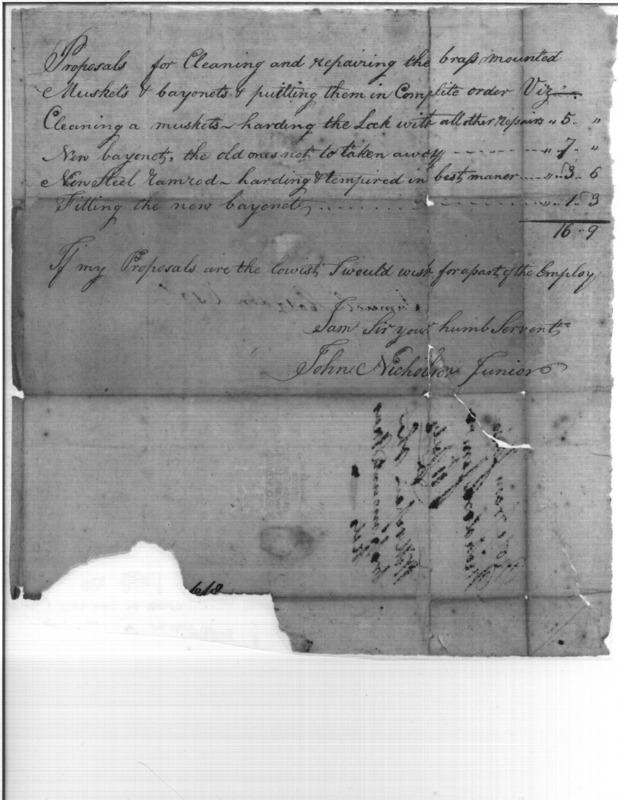 Proposals for Cleaning and repairing the brass mounted
Muskets & bayonets & putting them in Complete order Viz
Cleaning a muskets harding the Lock with all other repairs " 5 - "
New bayonet, the old ones not to taken away - - - - - " 7 - "
New Steel ramrod - harding & tempired in best maner - - - " 3 - 6
Fitting the new bayonet - - - - - - - - " 1 - 3
16 - 9
If my Proposals are the lowist, I would wish for a part of the Employ
I am Sir your humb Servent
John Nicholson Junior